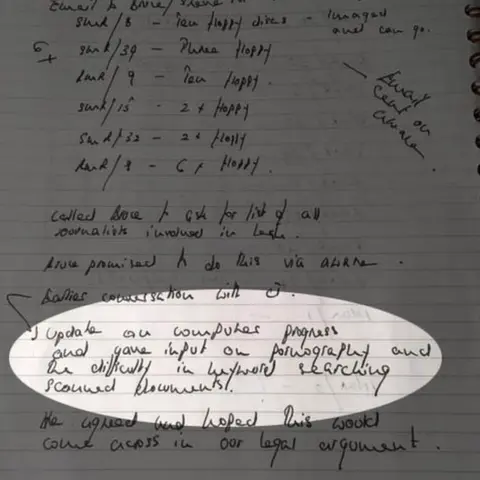 Email to Bruce/
SWR/8 - Ten floppy discs - imaged
and can go.
6 SWR/39 - Three floppy
RMR/9 - Ten floppy.
SWR/15 - 2 x floppy
SWR/32 - 2 x floppy
RMR/8 - 6 x floppy.
Await
on
Called Bruce to ask for list of all
journalists involved in
Bruce promised to do this via
Earlier conversation with
Update on computer progress
and gave input on pornography and
the difficulty in keyword searching
scanned documents.
He agreed and hoped this would
come across in our legal argument.